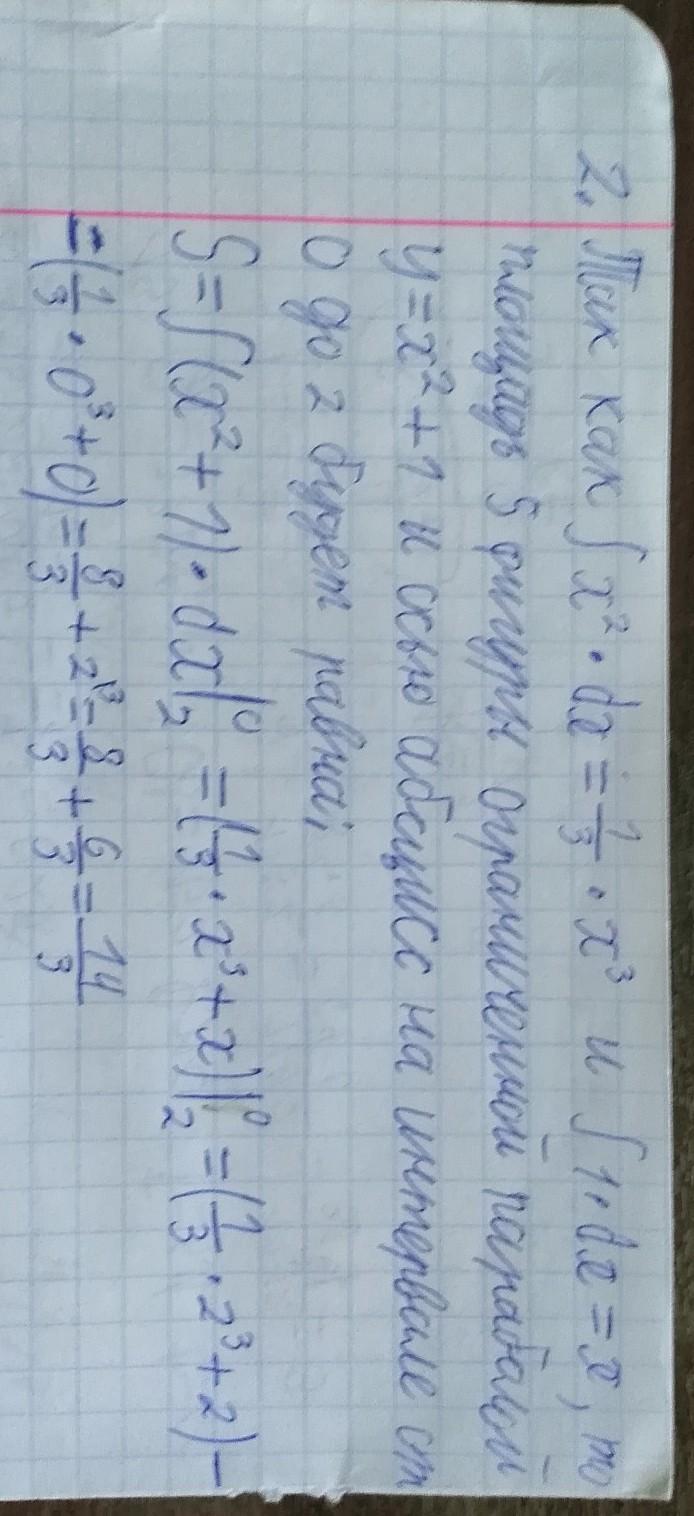 2. Так как ∫x²·dx = 1/3·x³ и ∫1·dx = x, то
площадь S фигуры ограниченной параболой
y = x² + 1 и осью абсцисс на интервале от
0 до 2 будет равна;
S = ∫(x² + 1)·dx|⁰₂ = (1/3·x³ + x)|⁰₂ = (1/3·2³ + 2) -
- (1/3·0³ + 0) = 8/3 + 2 = 8/3 + 6/3 = 14/3